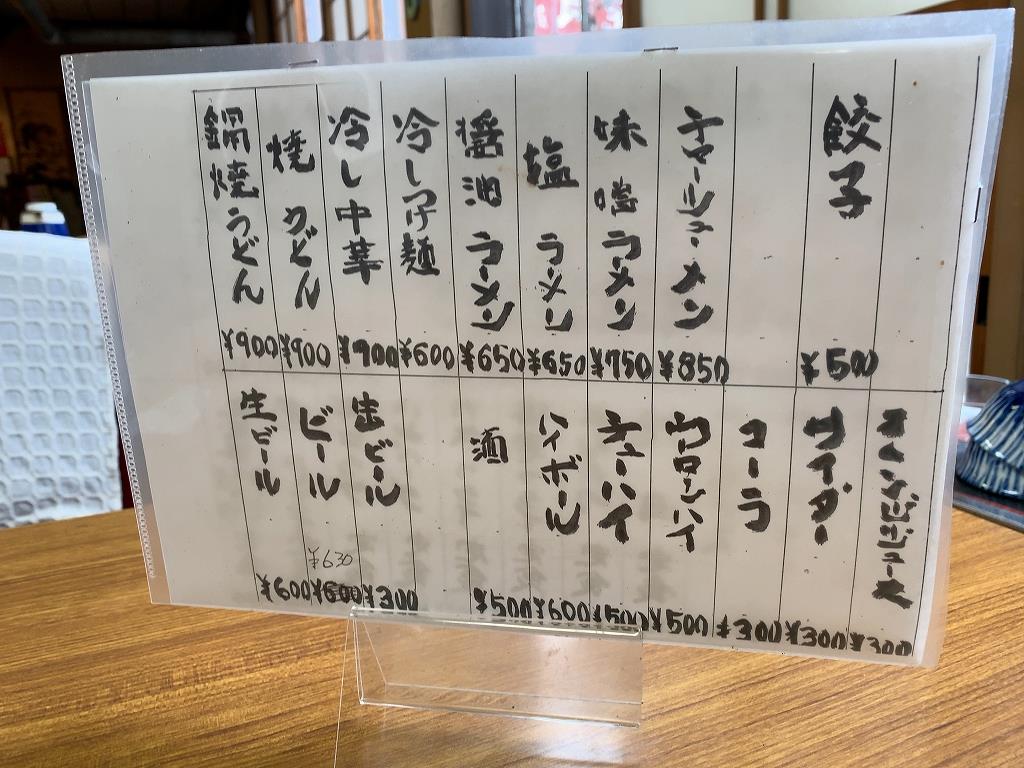 餃子 ¥500
チャーシューメン ¥850
味噌ラーメン ¥750
塩ラーメン ¥650
醤油ラーメン ¥650
冷しつけ麺 ¥600
冷し中華 ¥900
焼うどん ¥900
鍋焼うどん ¥900
オレンジジュース ¥300
サイダー ¥300
コーラ ¥300
ウーロンハイ ¥500
チューハイ ¥500
ハイボール ¥600
酒 ¥500
生ビール ¥300
ビール ¥630 ¥600
生ビール ¥600